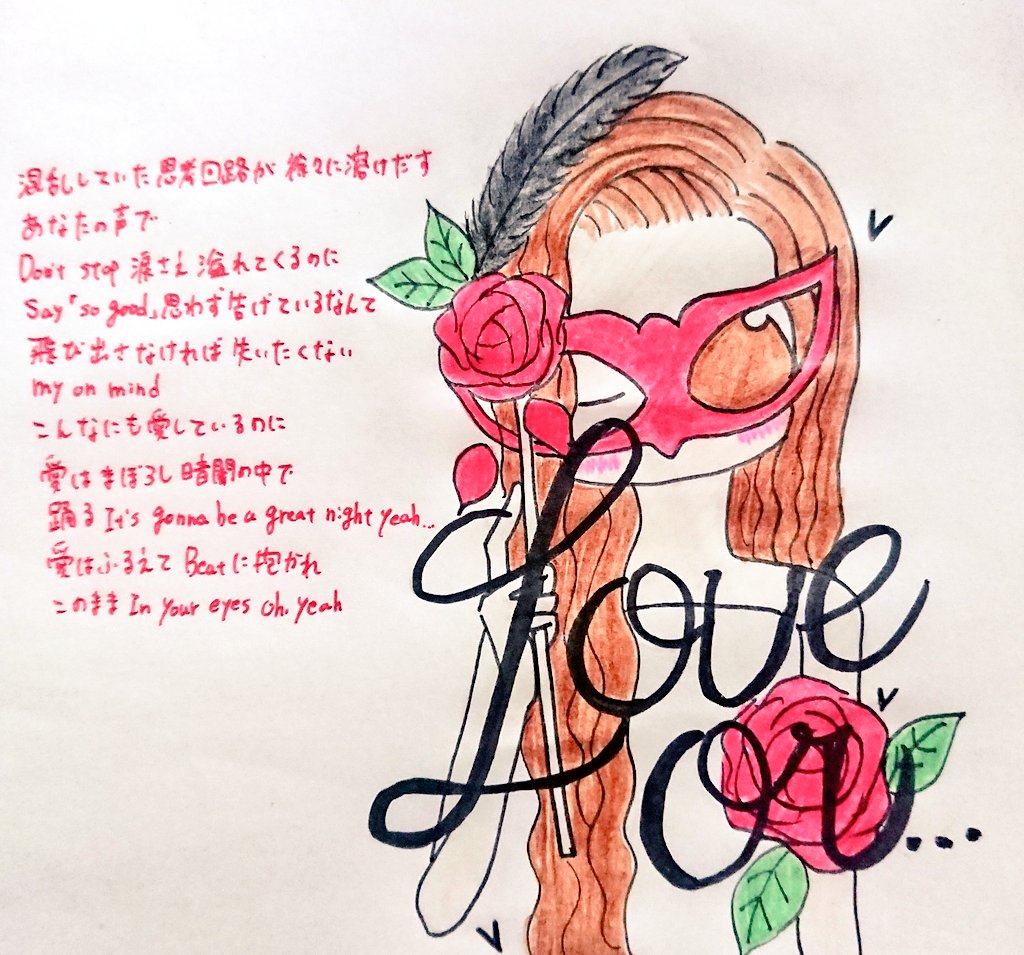 混乱していた思考回路が徐々に溶けだす
あなたの声で
Don't stop 涙さえ溢れてくるのに
Say「so good」思わず告げているなんて
飛び出さなければ失いたくない
my on mind
こんなにも愛しているのに
愛はまぼろし暗闇の中で
踊る It's gonna be a great night yeah...
愛はふるえて Beatに抱かれ
このまま In your eyes oh. yeah
Love
on...